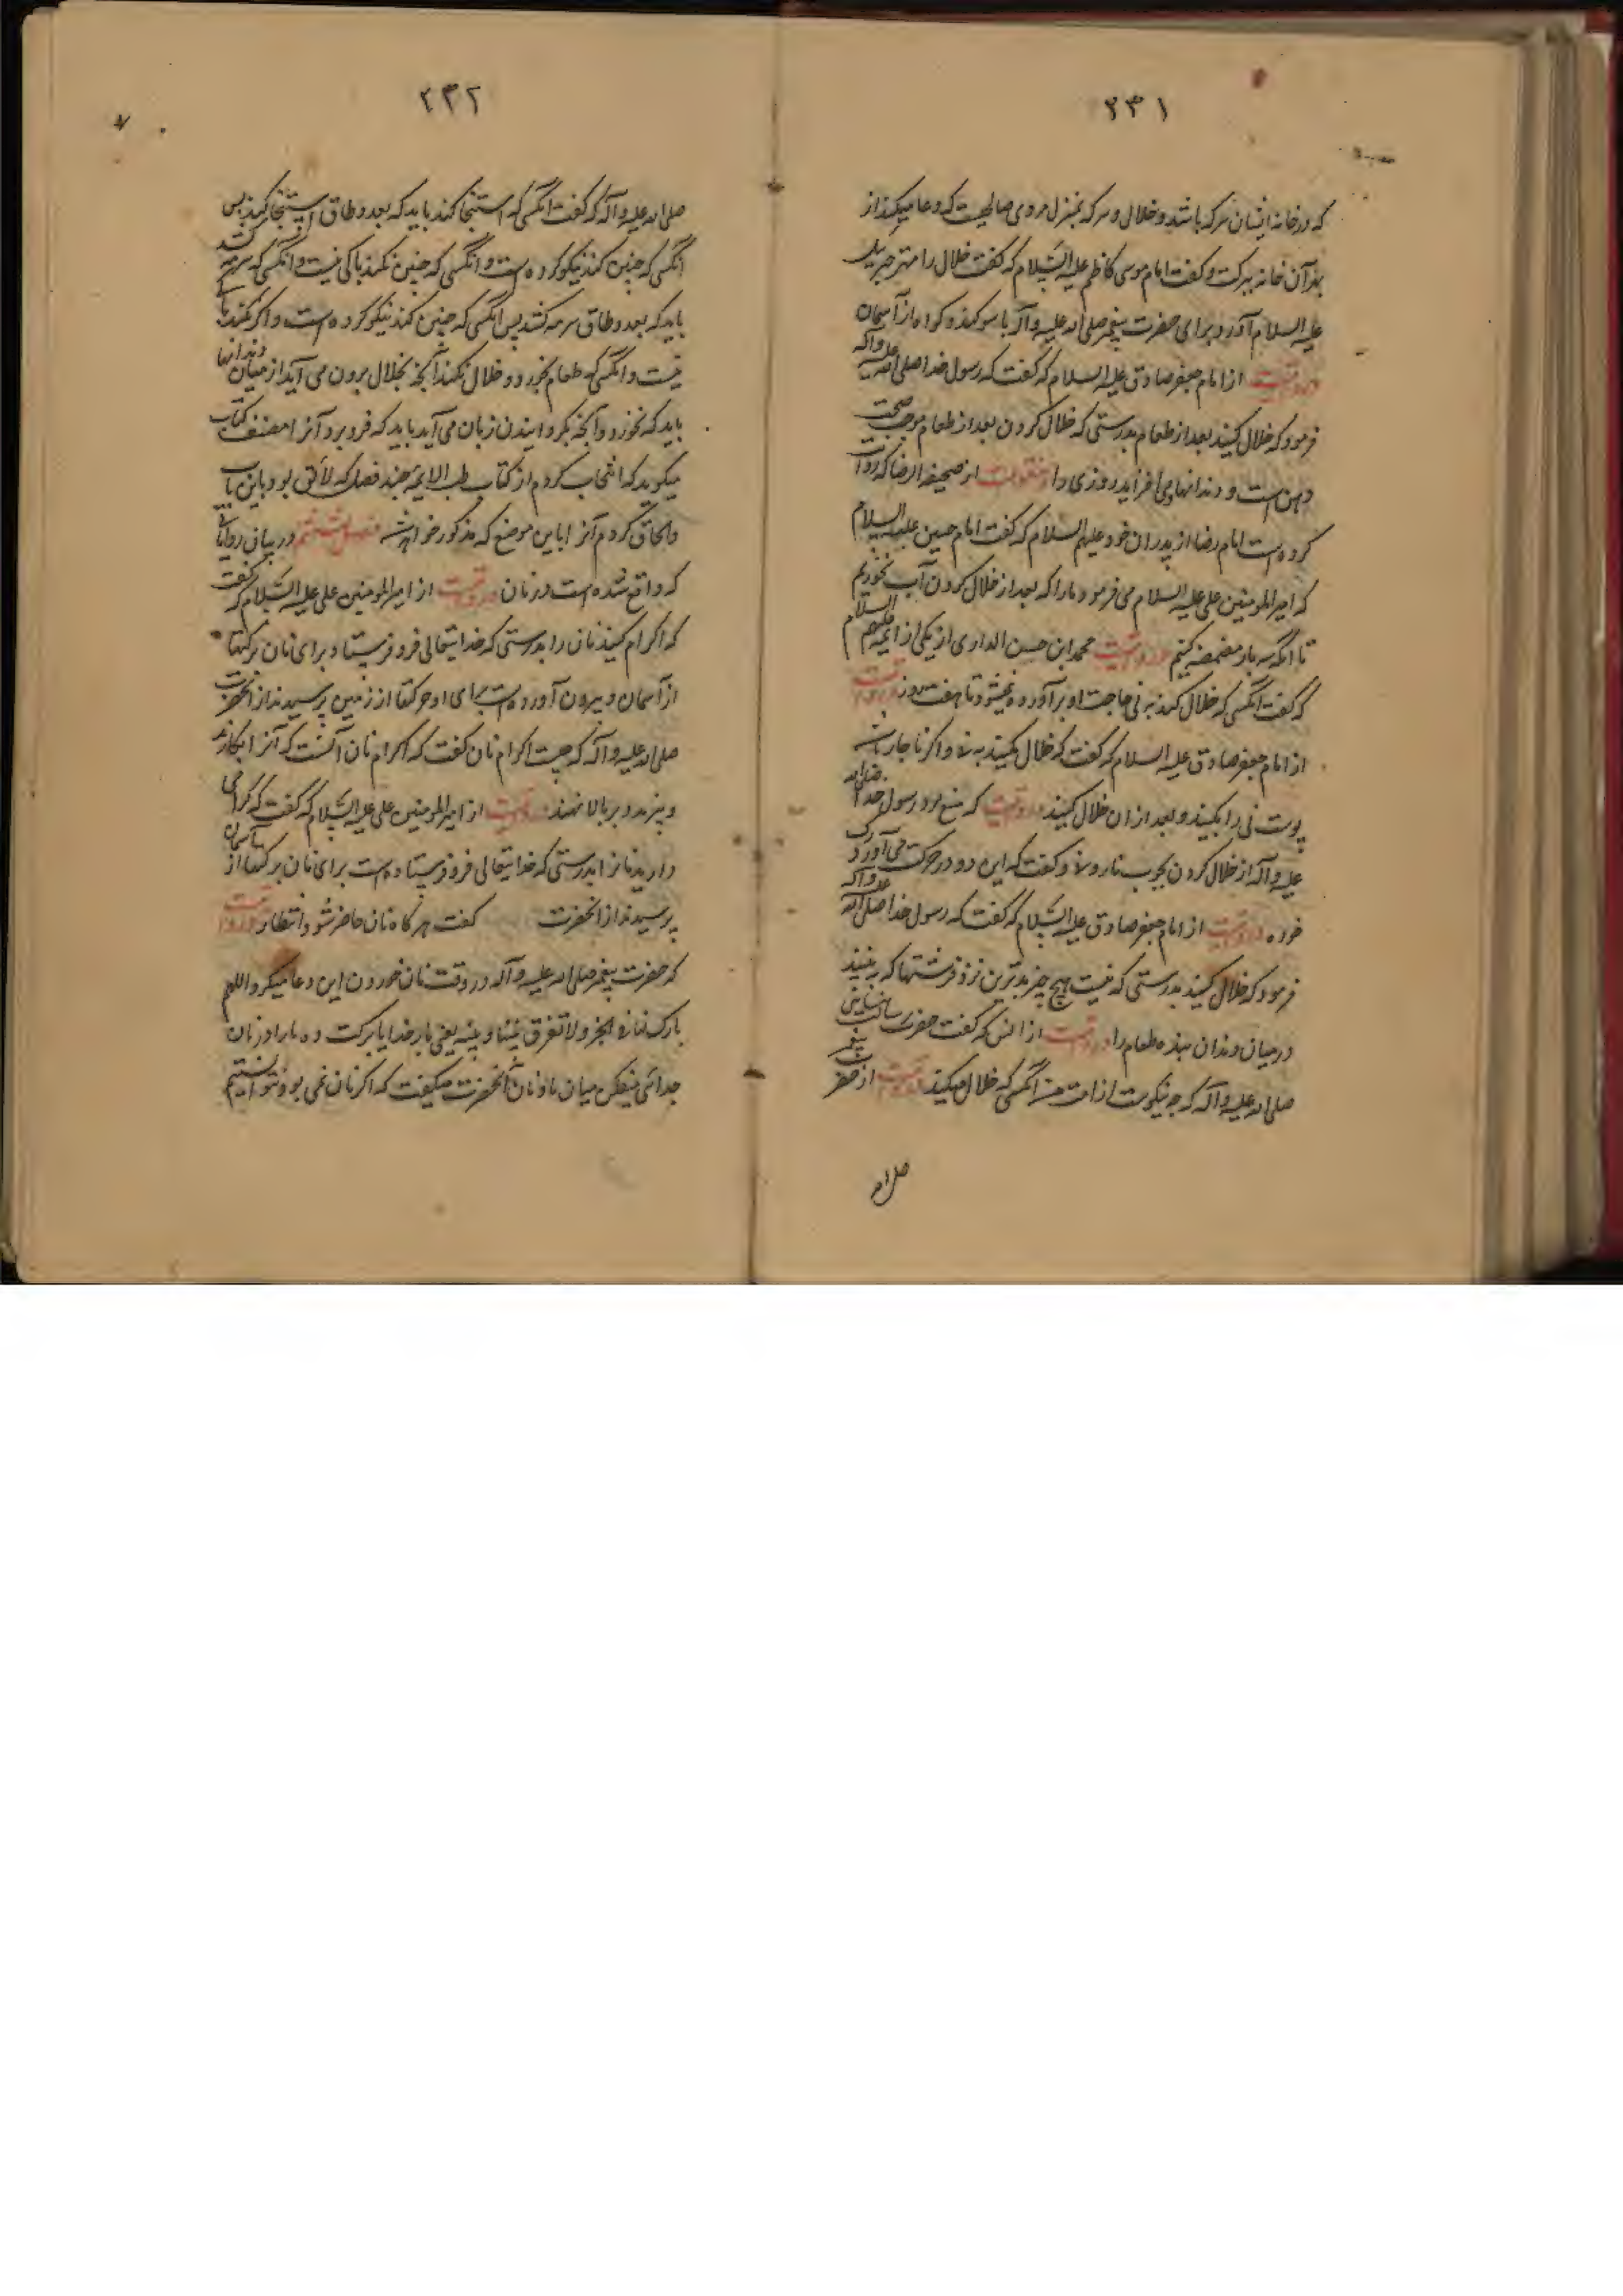 ٢٣١
که در خانه ایشان سرکه باشد و خلال و سرکه بمنزل مردی صالحیت که دعا میکند از
بهر آن خانه ببرکت و گفت امام موسی کاظم علیه السلام که گفت خلال را مهتر جبرییل
علیه السلام آورد برای حضرت پیغمبر صلی الله علیه و آله با سوکند و کواه از آسمان
مرویست از امام جعفر صادق علیه السلام که گفت که رسول خدا صلی الله علیه و آله
فرمود که خلال کنید بعد از طعام بدرستی که خلال کردن بعد از طعام موجب صحت
دهن است و دندانها و می افزاید روزی را منقولست از صحیفة الرضا که روایت
کرده است امام رضا از پدران خود علیهم السلام که گفت امام حسین علیه السلام
که امیرالمومنین علی علیه السلام می فرمود ما را که بعد از خلال کردن آب نخوریم
تا آنکه سه بار مضمضه کنیم مرویست محمد ابن حسن الداری از یکی از ایمه علیهم السلام
که گفت آنکسی که خلال کند به نی حاجت او برآورده نمیشود تا هفت روز مرویست
از امام جعفر صادق علیه السلام که گفت که خلال مکنید به نی و اگر ناچار باشد
پوست نی را بکنید و بعد از ان خلال کنید مرویست که منع کرد رسول خدا صلی الله
علیه و آله از خلال کردن بچوب نار و نی و گفت که این دو در حرکت می آورد رک
خوره مرویست از امام جعفر صادق علیه السلام که گفت که رسول خدا صلی الله علیه و آله
فرمود که خلال کنید بدرستی که نیست هیچ چیز بدترین نزد فرشتها که به بینند
درمیان دندان بنده طعام را مرویست از انس که گفت حضرت رسالت پناه
صلی الله علیه و آله که چه نیکوست از امت من آنکسی که خلال میکند مرویست از حضرت پیغمبر
صلی الله
٢٣٢
صلی الله علیه و آله که گفت آنکسی که استنجا کند باید که بعدد طاق استنجا کند پس
آنکسی که چنین کند نیکو کرده است و آنکسی که چنین نکند باکی نیست و آنکسی که سرمه کشد
باید که بعدد طاق سرمه کشد پس آنکسی که چنین کند نیکو کرده است و اگر نکند باکی
نیست و آنکسی که طعام بخورد و خلال نکند آنچه بخلال برون می آید از میان دندانها
باید که نخورد و آنچه بگردانیدن زبان می آید باید که فرو برد آنرا مصنف کتاب
میکوید که انتخاب کردم از کتاب طب الایمه چند فصل که لائق بود باین باب
و الحاق کردم آنرا باین موضع که مذکور خواهد شد فصل هشتم در بیان روایاتی
که واقع شده است در نان مرویست از امیرالمومنین علی علیه السلام که گفت
که اکرام کنید نان را بدرستی که خدا یتعالی فرو فرستاد برای نان برکتها
از آسمان و بیرون آورده است برای او برکتها از زمین پرسیدند از آنحضرت
صلی الله علیه و آله که چیست اکرام نان گفت که اکرام نان آنست که آنرا بکارند
و پزند و بر بالا نهند مرویست از امیرالمومنین علی علیه السلام که گفت که گرامی
دارید نانرا بدرستی که خدا یتعالی فرو فرستاده است برای نان برکتها از آسمان
پرسیدند از آنحضرت گفت هر کاه نان حاضر شود انتظار مرویست
که حضرت پیغمبر صلی الله علیه و آله در وقت نان خوردن این دعا میکرد اللهم
بارک لنا فی الخبز و لا تفرق بیننا و بینه یعنی بار خدایا برکت ده ما را در نان
جدائی میفکن میان ما و نان آنحضرت میکفت که اگر نان نمی بود نتوانستیم